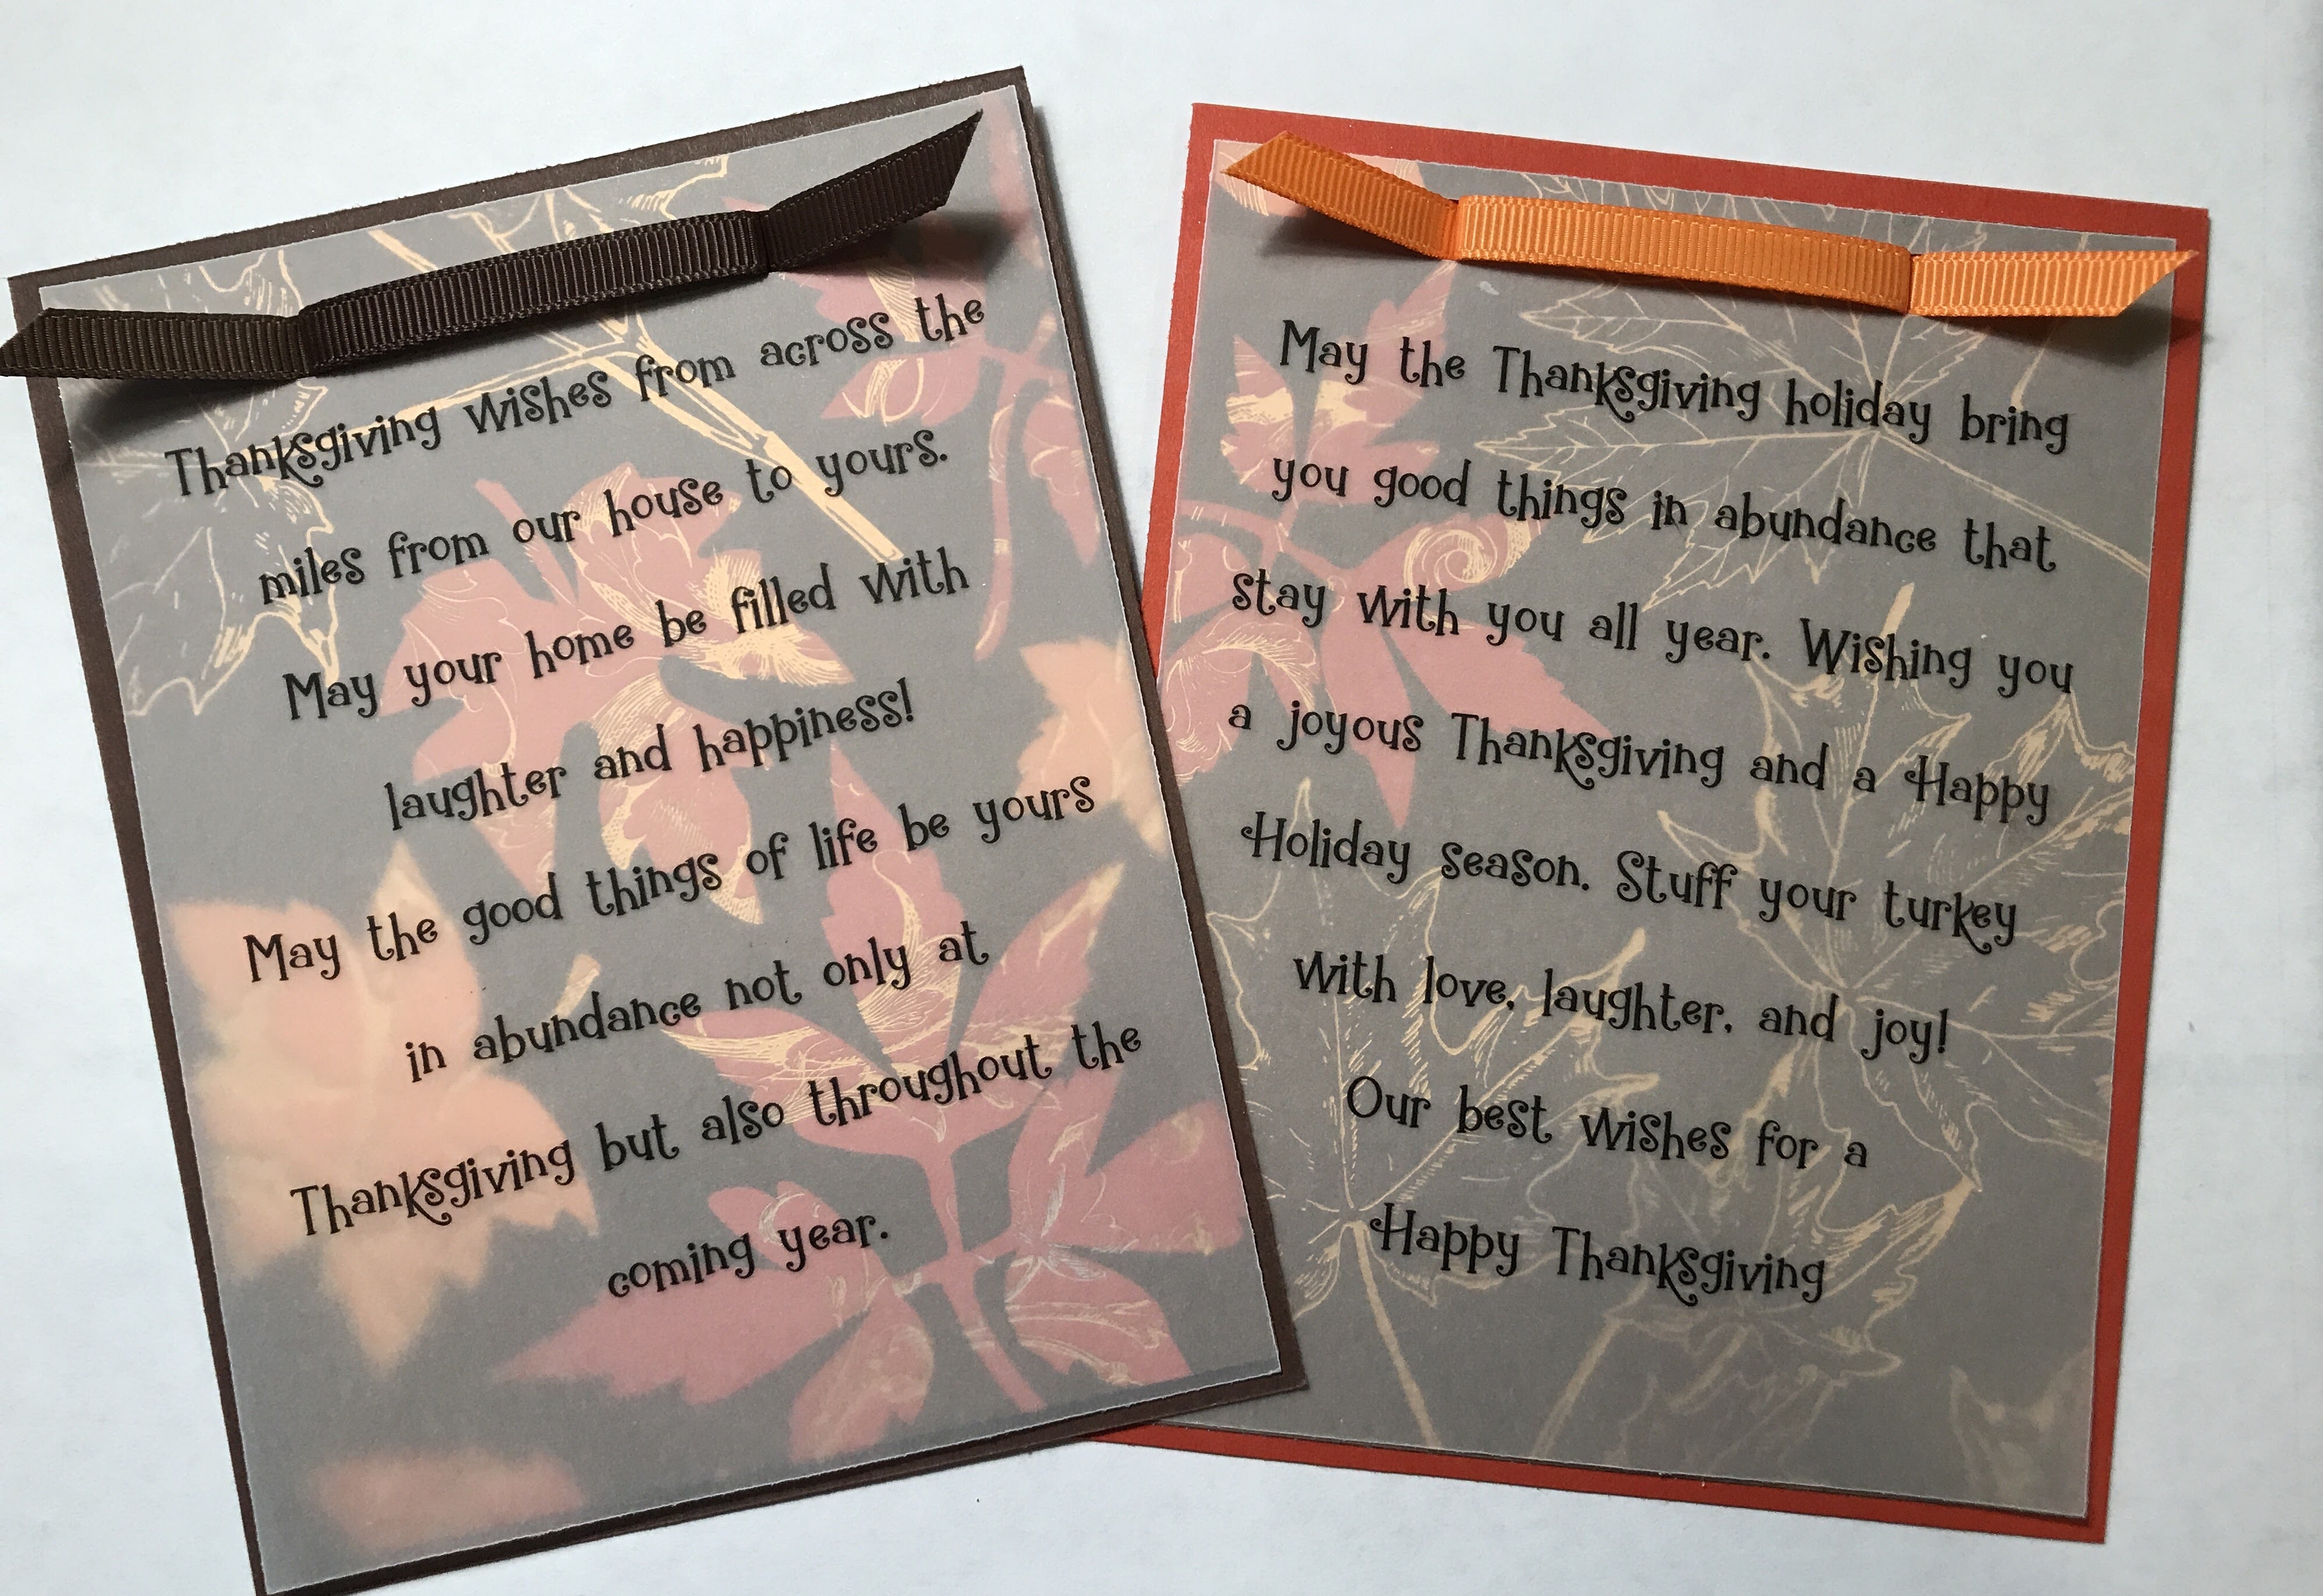 Thanksgiving wishes from across the
miles from our house to yours.
May your home be filled with
laughter and happiness!
May the good things of life be yours
in abundance not only at
Thanksgiving but also throughout the
coming year.
May the Thanksgiving holiday bring
you good things in abundance that
stay with you all year. Wishing you
a joyous Thanksgiving and a Happy
Holiday season. Stuff your turkey
with love, laughter, and joy!
Our best wishes for a
Happy Thanksgiving